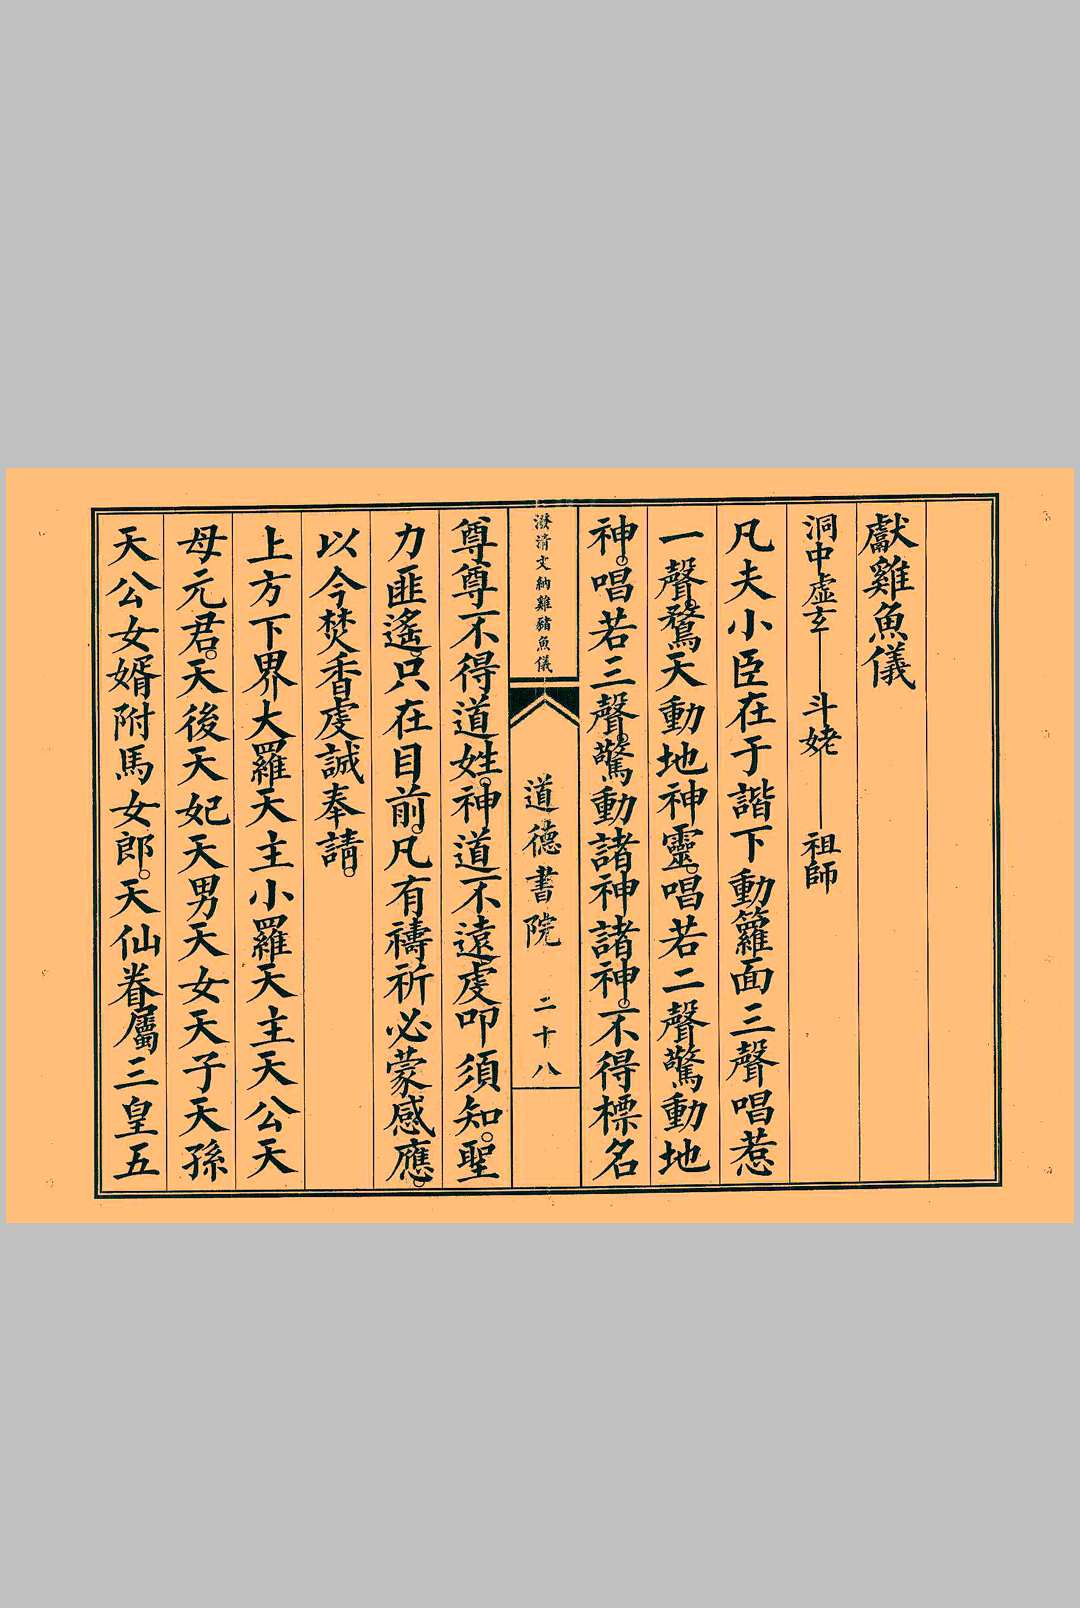 獻雞魚儀
洞中虛玄——斗姥——祖師
凡夫小臣在于諧下動籮面三聲唱惹
一聲。驚天動地神靈。唱若二聲驚動地
神。唱若三聲。驚動諸神諸神。不得標名
潑清文納雞豬魚儀 道德書院 二十八
尊尊不得道姓。神道不遠虔叩須知。聖
力匪遙。只在目前。凡有禱祈必蒙感應。
以今焚香虔誠奉請。
上方下界大羅天主小羅天主天公天
母元君。天後天妃天男天女天子天孫
天公女婿附馬女郎。天仙眷屬三皇五